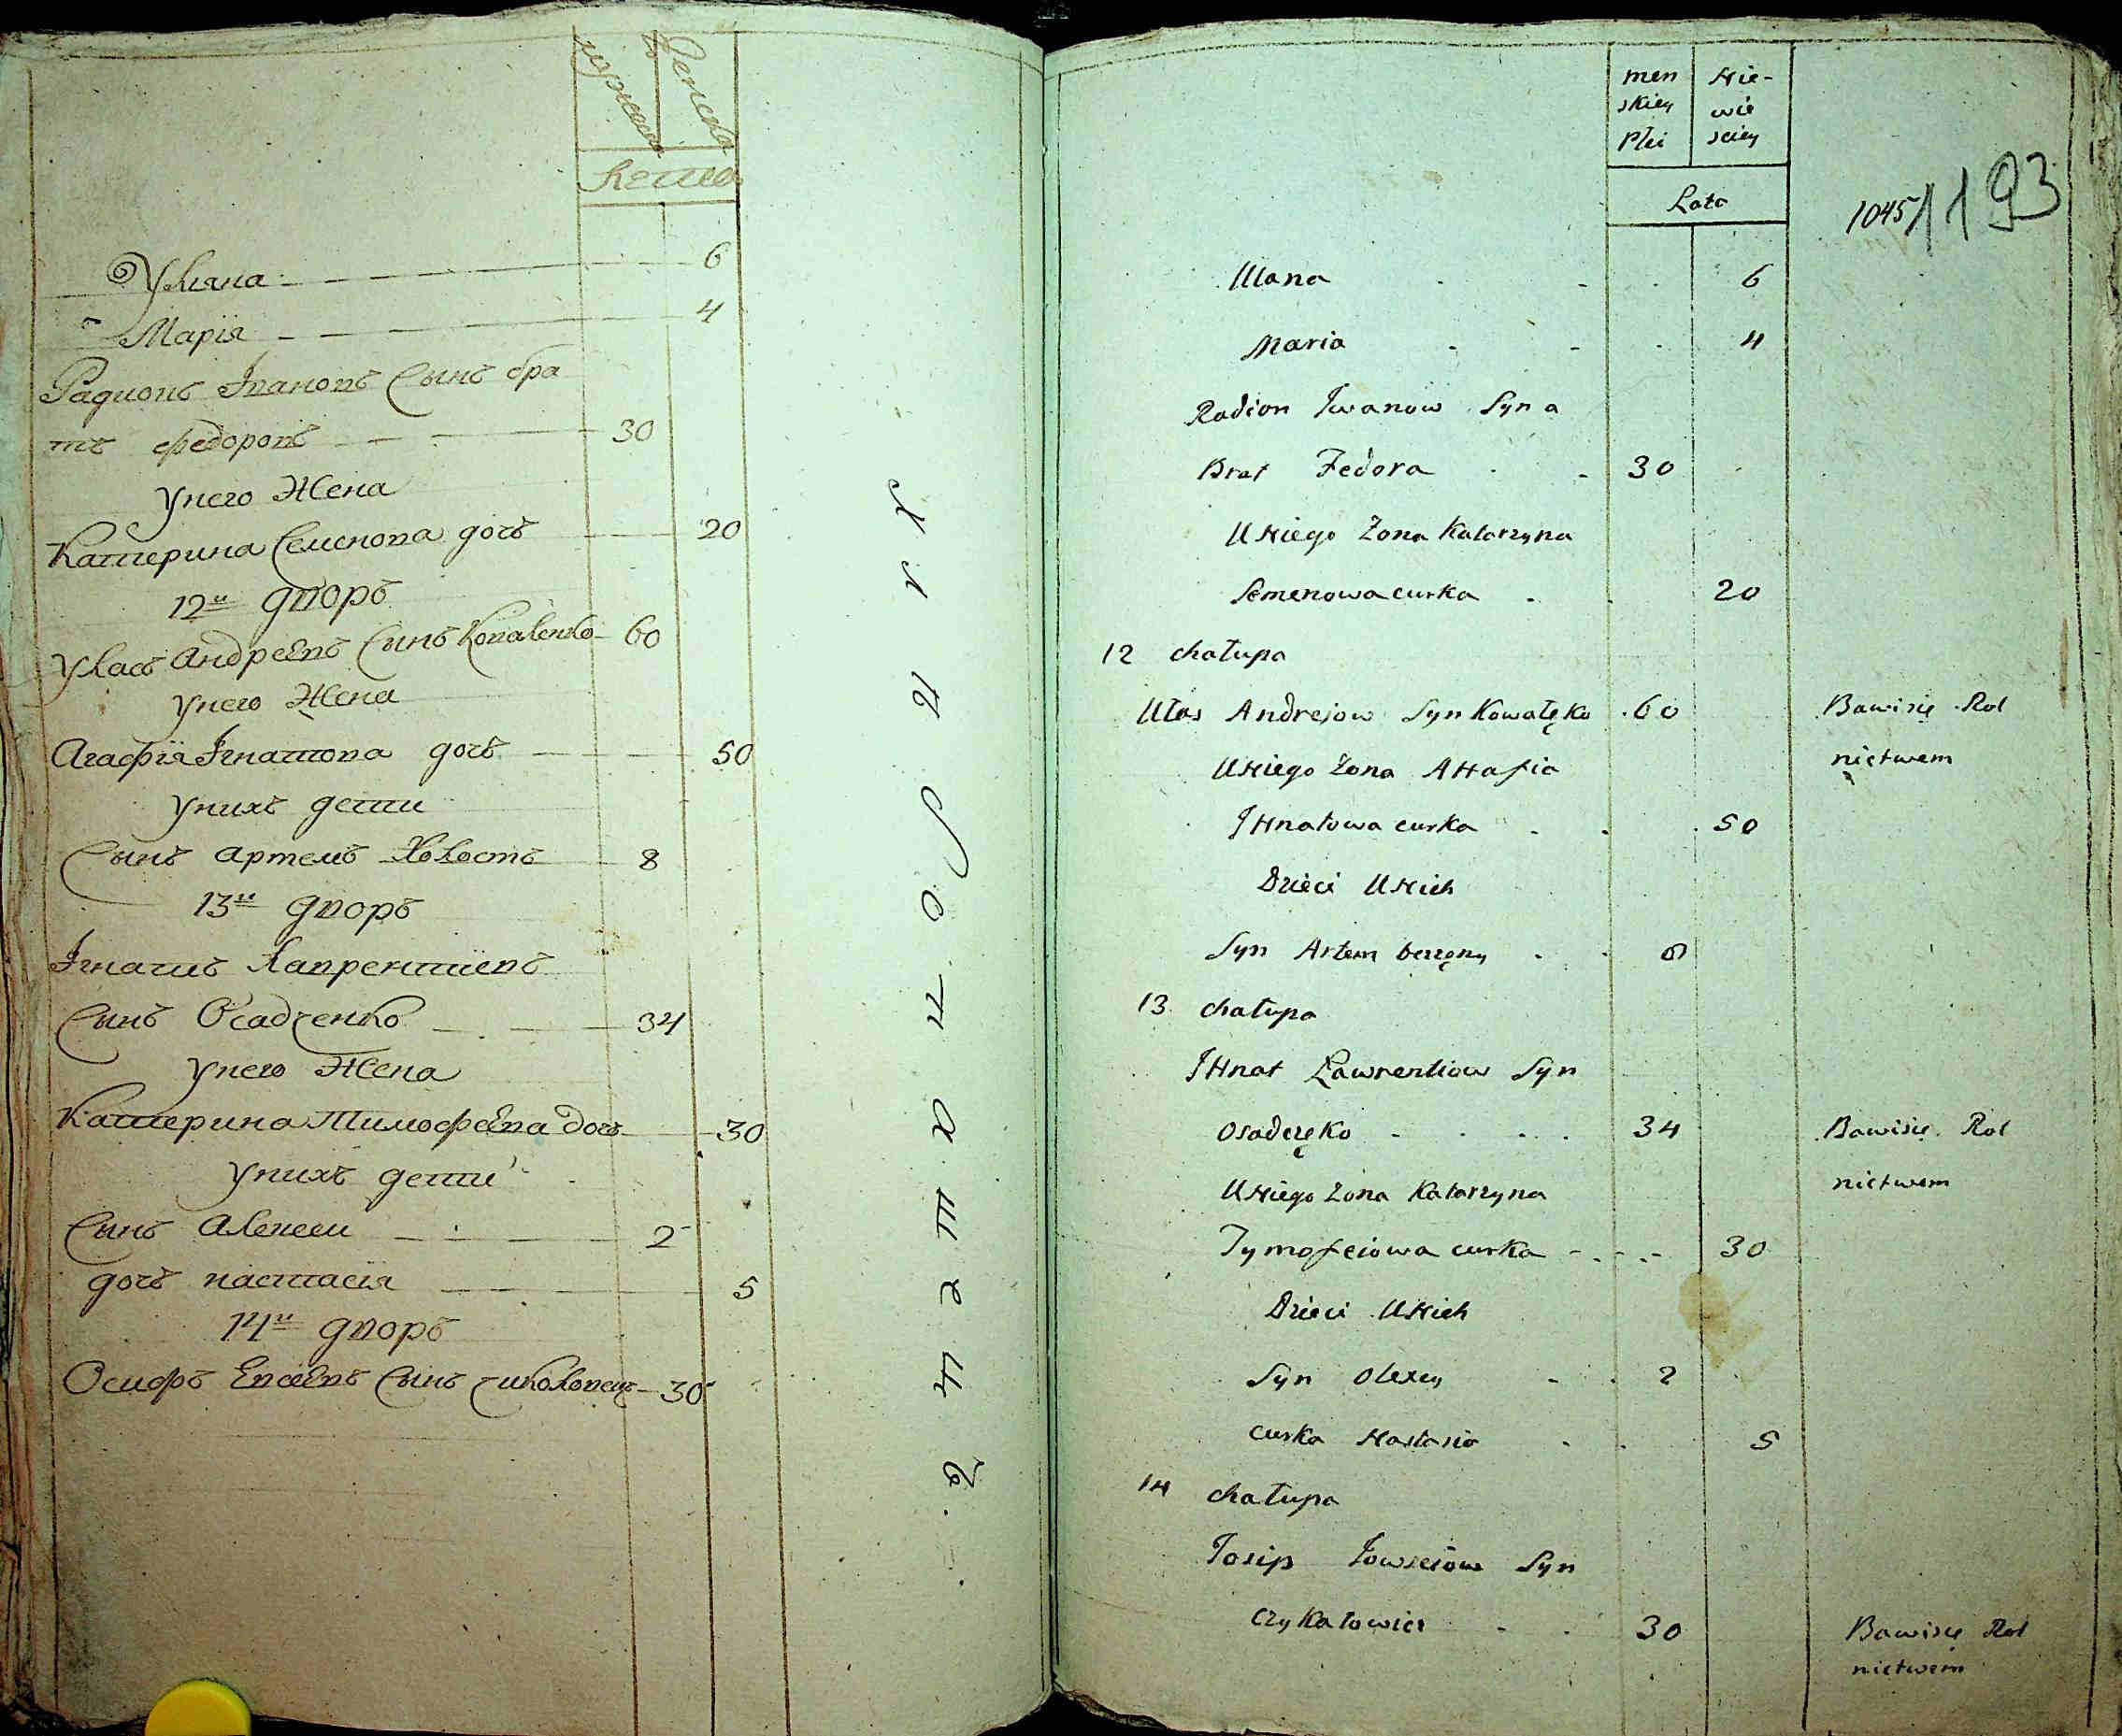 мужеска
женска
лета
Уляна 6
Марія 4
Радионъ Івановъ Сынъ бра
тъ федоровъ 30
Унего Жена
Катерина Семенова дочъ 20
12й дворъ
Уласъ Андреевъ Сынъ Коваленко 60
Унего Жена
Агафія Ігнатова дочъ 50
Унихъ дети
Сынъ Артемъ Холостъ 8
13й дворъ
Ігнатъ Лаврентиевъ
Сынъ Осадченко 34
Унего Жена
Катерина Тимофеева дочъ 30
Унихъ дети
Сынъ Алексеи 2
дочъ настасія 5
14й дворъ
Осифъ Евсеевъ Сынъ 30
men Nie-
skiey wie
Płci sciey
Lata
1045
1193
Ulana 6
Maria 4
Radion Jwanow Syn a
Brat Fedora 30
U Niego Żona Katarzyna
Semenowa curka 20
12 chałupa
Ułas Andrejow Syn Kowalęko 60 Bawi się Rol
U Niego Żona AHafia nictwem
JHnatowa curka 50
Dzieci U Nich
Syn Artem bezżęny 8
13 chałupa
JHnat Ławrentiow Syn
Osadczęko 34 Bawi się Rol
U Niego Żona Katarzyna nictwem
Tymofeiowa curka 30
Dzieci U Nich
Syn Olexey 2
Curka Nastasia 5
14 chałupa
Josip Jowseiow Syn
Czykałowiec 30 Bawi się Rol
nictwem